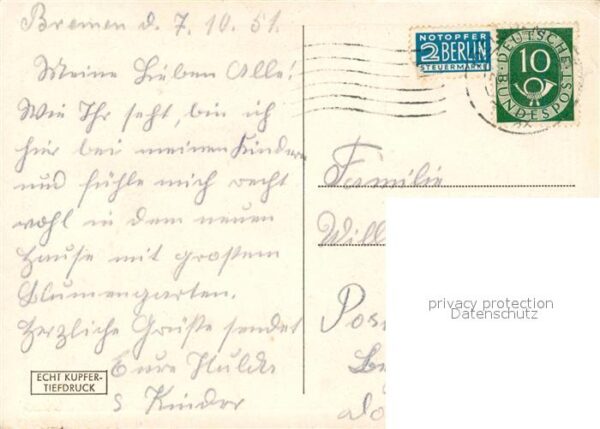 Bremen d. 7. 10. 51.
Meine Lieben Alle!
Wie Ihr seht, bin ich
hier bei meinen Kindern
und fühle mich recht
wohl in dem neuen
Hause mit großem
Blumengarten.
Herzliche Grüße sendet
Eure Hulda
& Kinder
ECHT KUPFER-
TIEFDRUCK
NOTOPFER
2 BERLIN
STEUERMARKE
DEUTSCHE
10
BUNDESPOST
Familie
Will
Pos
privacy protection
Datenschutz